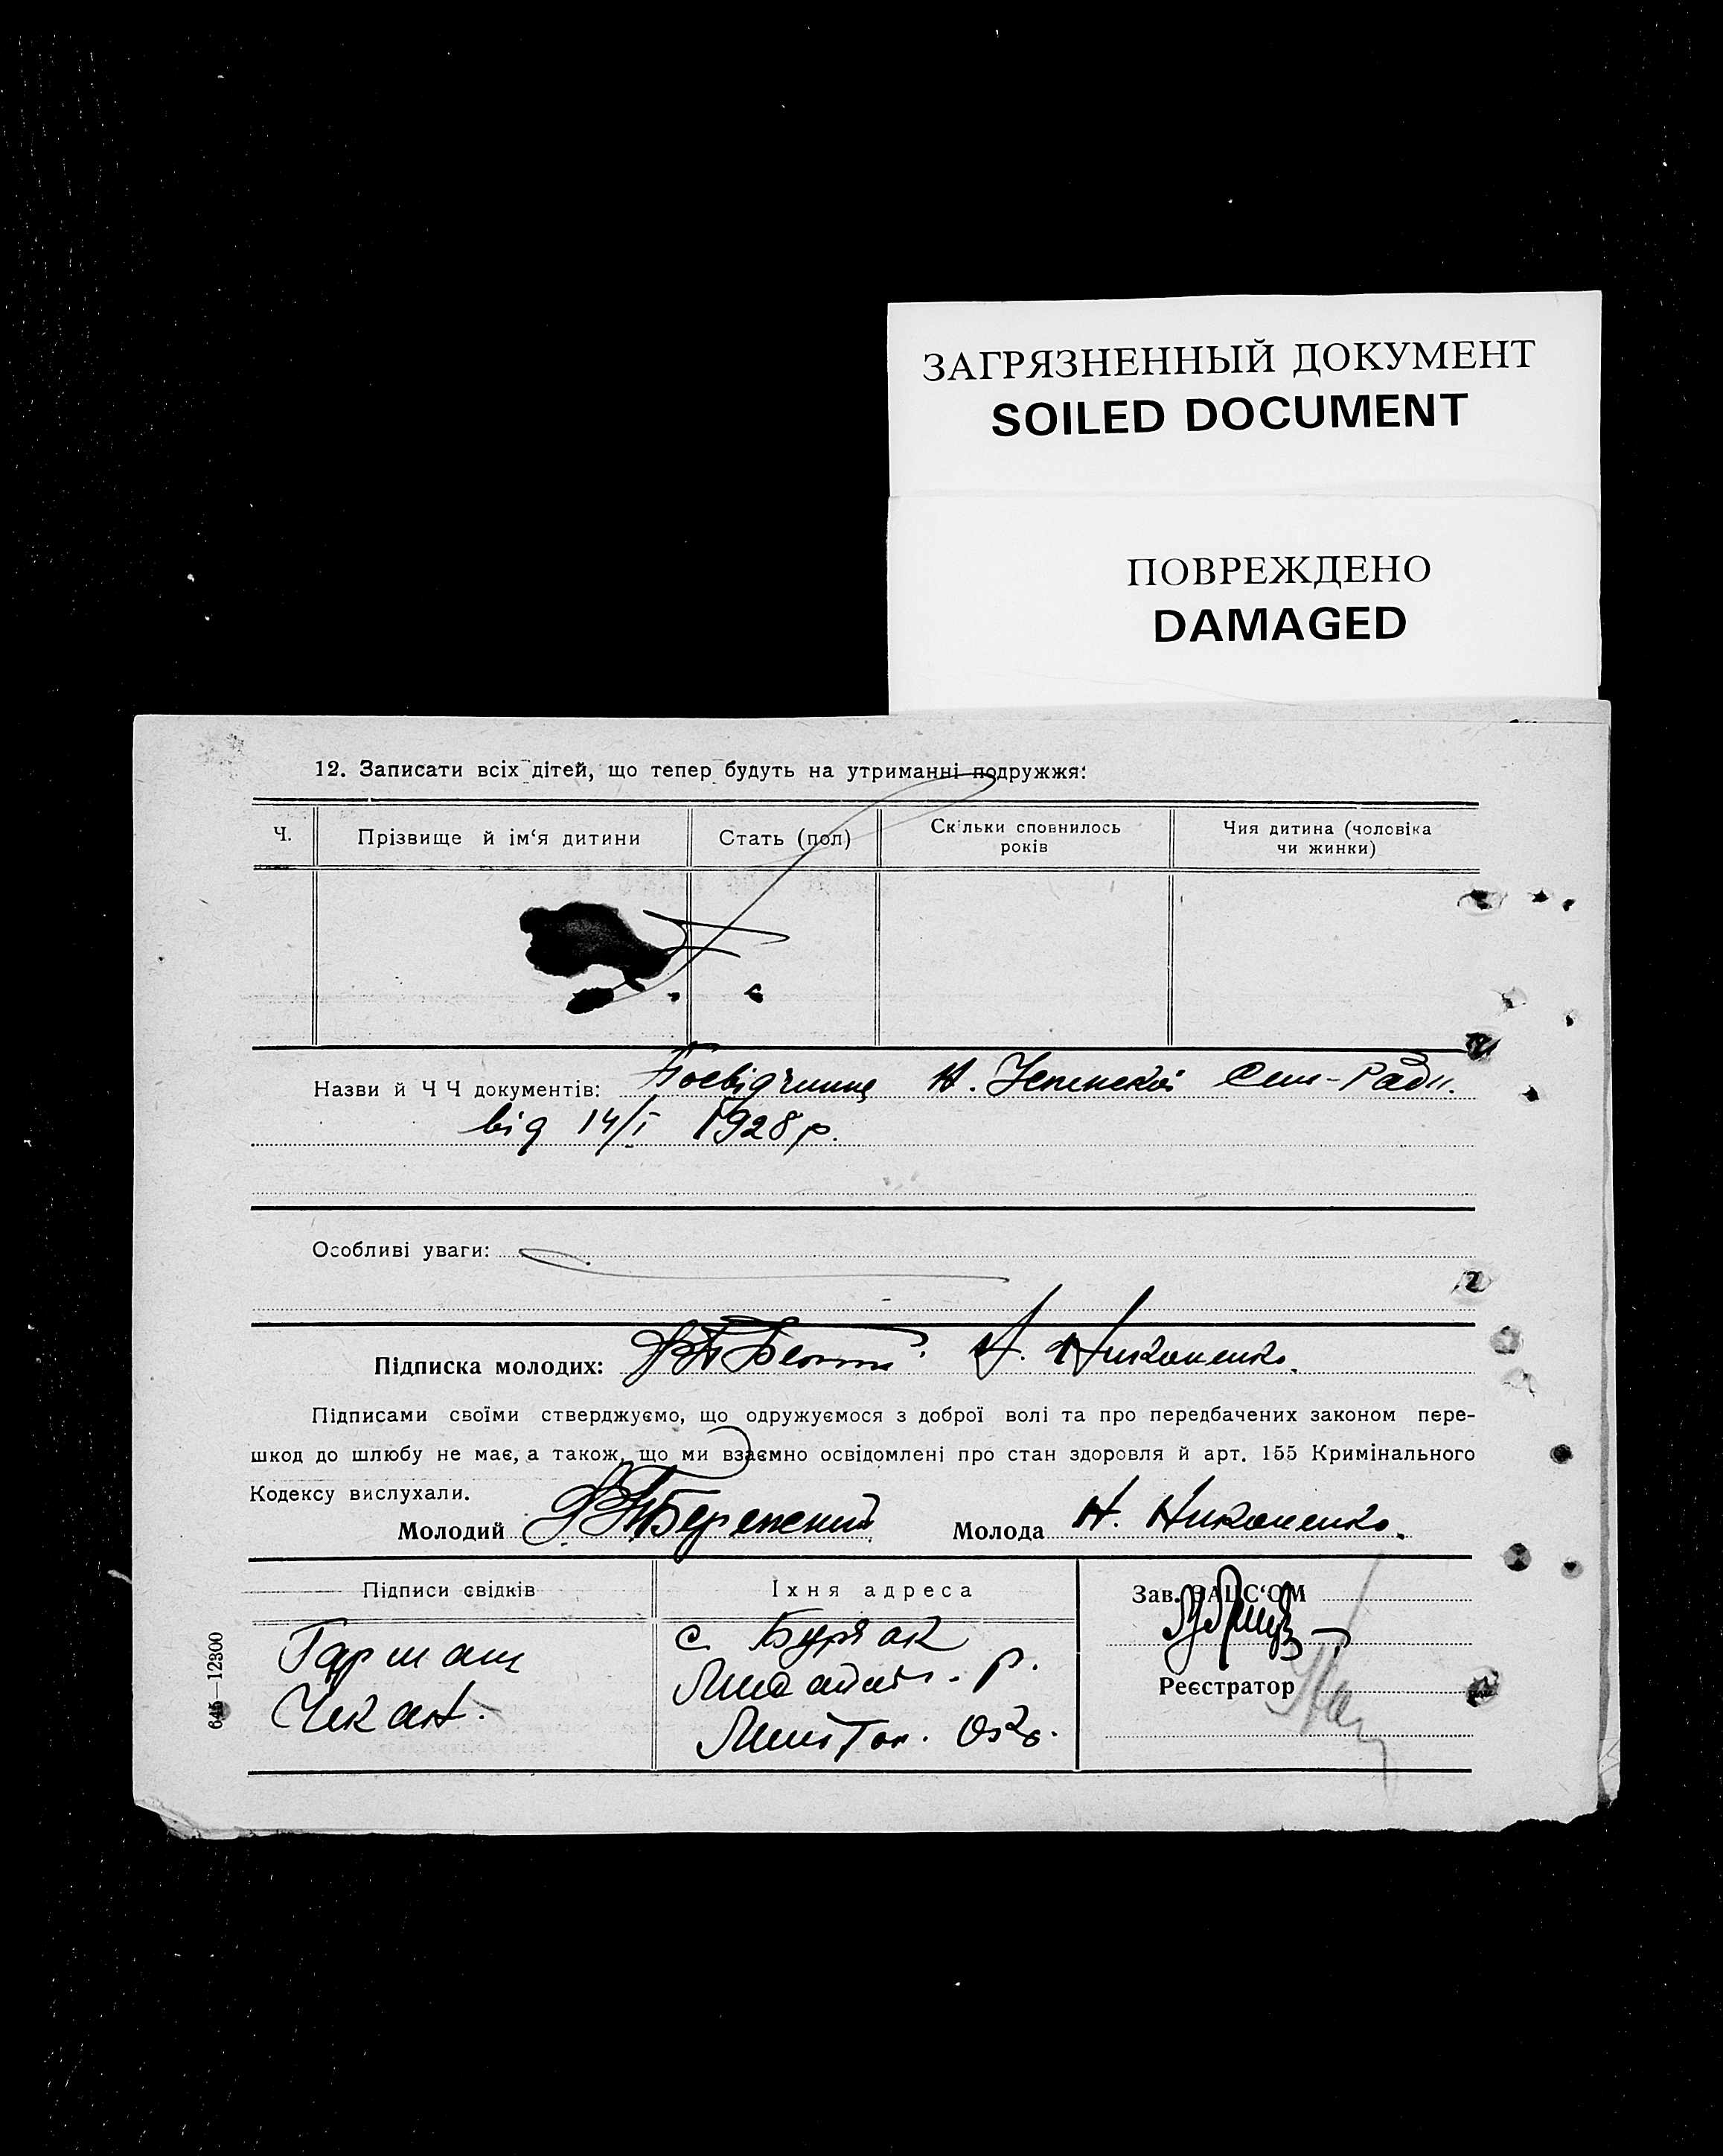 ЗАГРЯЗНЕННЫЙ ДОКУМЕНТ
SOILED DOCUMENT
ПОВРЕЖДЕНО
DAMAGED
12. Записати всіх дітей, що тепер будуть на утриманні подружжя:
Ч.
Прізвище й ім‘я дитини
Стать (пол)
Скільки сповнилось
років
Чия дитина (чоловіка
чи жинки)
Назви й Ч Ч документів: Посвідчення Н. Ради
від 14/I 1928 р.
Особливі уваги:
Підписка молодих: Н. Никоненко.
Підписами своїми стверджуємо, що одружуємося з доброї волі та про передбачених законом пере-
шкод до шлюбу не має, а також, що ми взаємно освідомлені про стан здоровля й арт. 155 Кримінального
Кодексу вислухали.
Молодий Молода Н. Никоненко.
Підписи свідків
Їхня адреса
Зав. ЗАЦС‘ОМ
Гармаш
Чекан.
с. Буряк
Реєстратор
645—12300